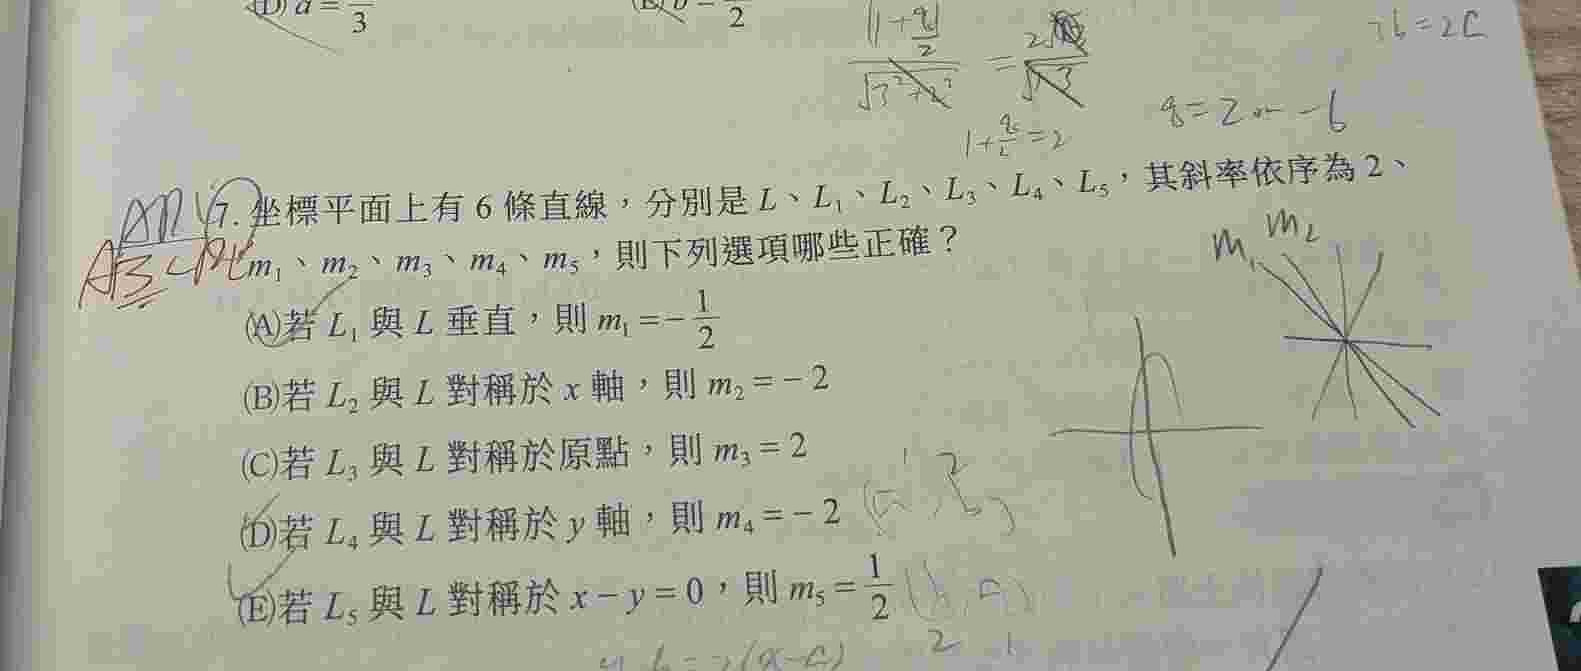 (D) a = —/3
(E) b = —/2
|1+q/2| / √3²+2² = 2√ / √13
7b=2c
1+q/2=2
q=2 or -6
7. 坐標平面上有 6 條直線，分別是 L、L₁、L₂、L₃、L₄、L₅，其斜率依序為 2、
m₁、m₂、m₃、m₄、m₅，則下列選項哪些正確？
m₁ m₂
(A)若 L₁ 與 L 垂直，則 m₁ = -1/2
(B)若 L₂ 與 L 對稱於 x 軸，則 m₂ = -2
(C)若 L₃ 與 L 對稱於原點，則 m₃ = 2
(D)若 L₄ 與 L 對稱於 y 軸，則 m₄ = -2
(E)若 L₅ 與 L 對稱於 x - y = 0，則 m₅ = 1/2
(b, a)
2 1